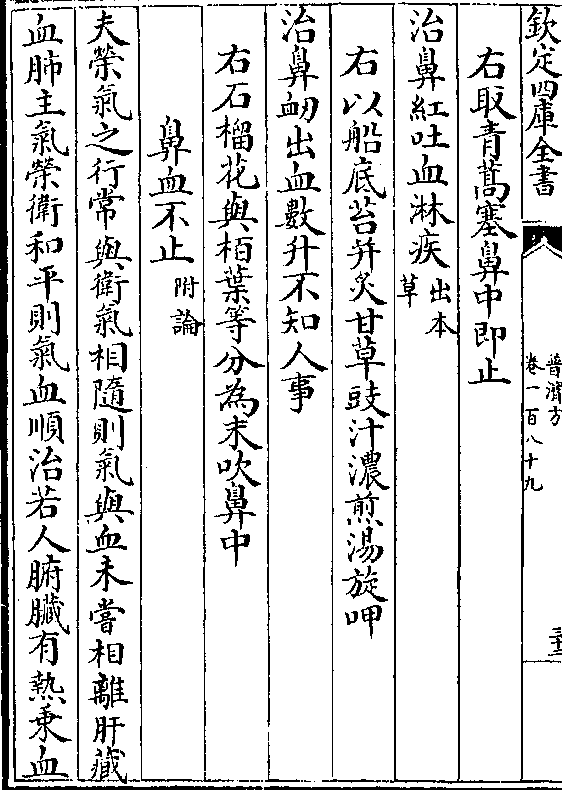 欽定四庫全書
普濟方
卷一百八十九
三十二
右取青蒿塞鼻中即止
治鼻紅吐血淋疾出本草
右以船底苔并炙甘草豉汁濃煎湯旋呷
治鼻衂出血數升不知人事
右石榴花與栢葉等分為末吹鼻中
鼻血不止附論
夫榮氣之行常與衛氣相隨則氣與血未嘗相離肝藏
血肺主氣榮衛和平則氣血順治若人腑臟有熱乘血